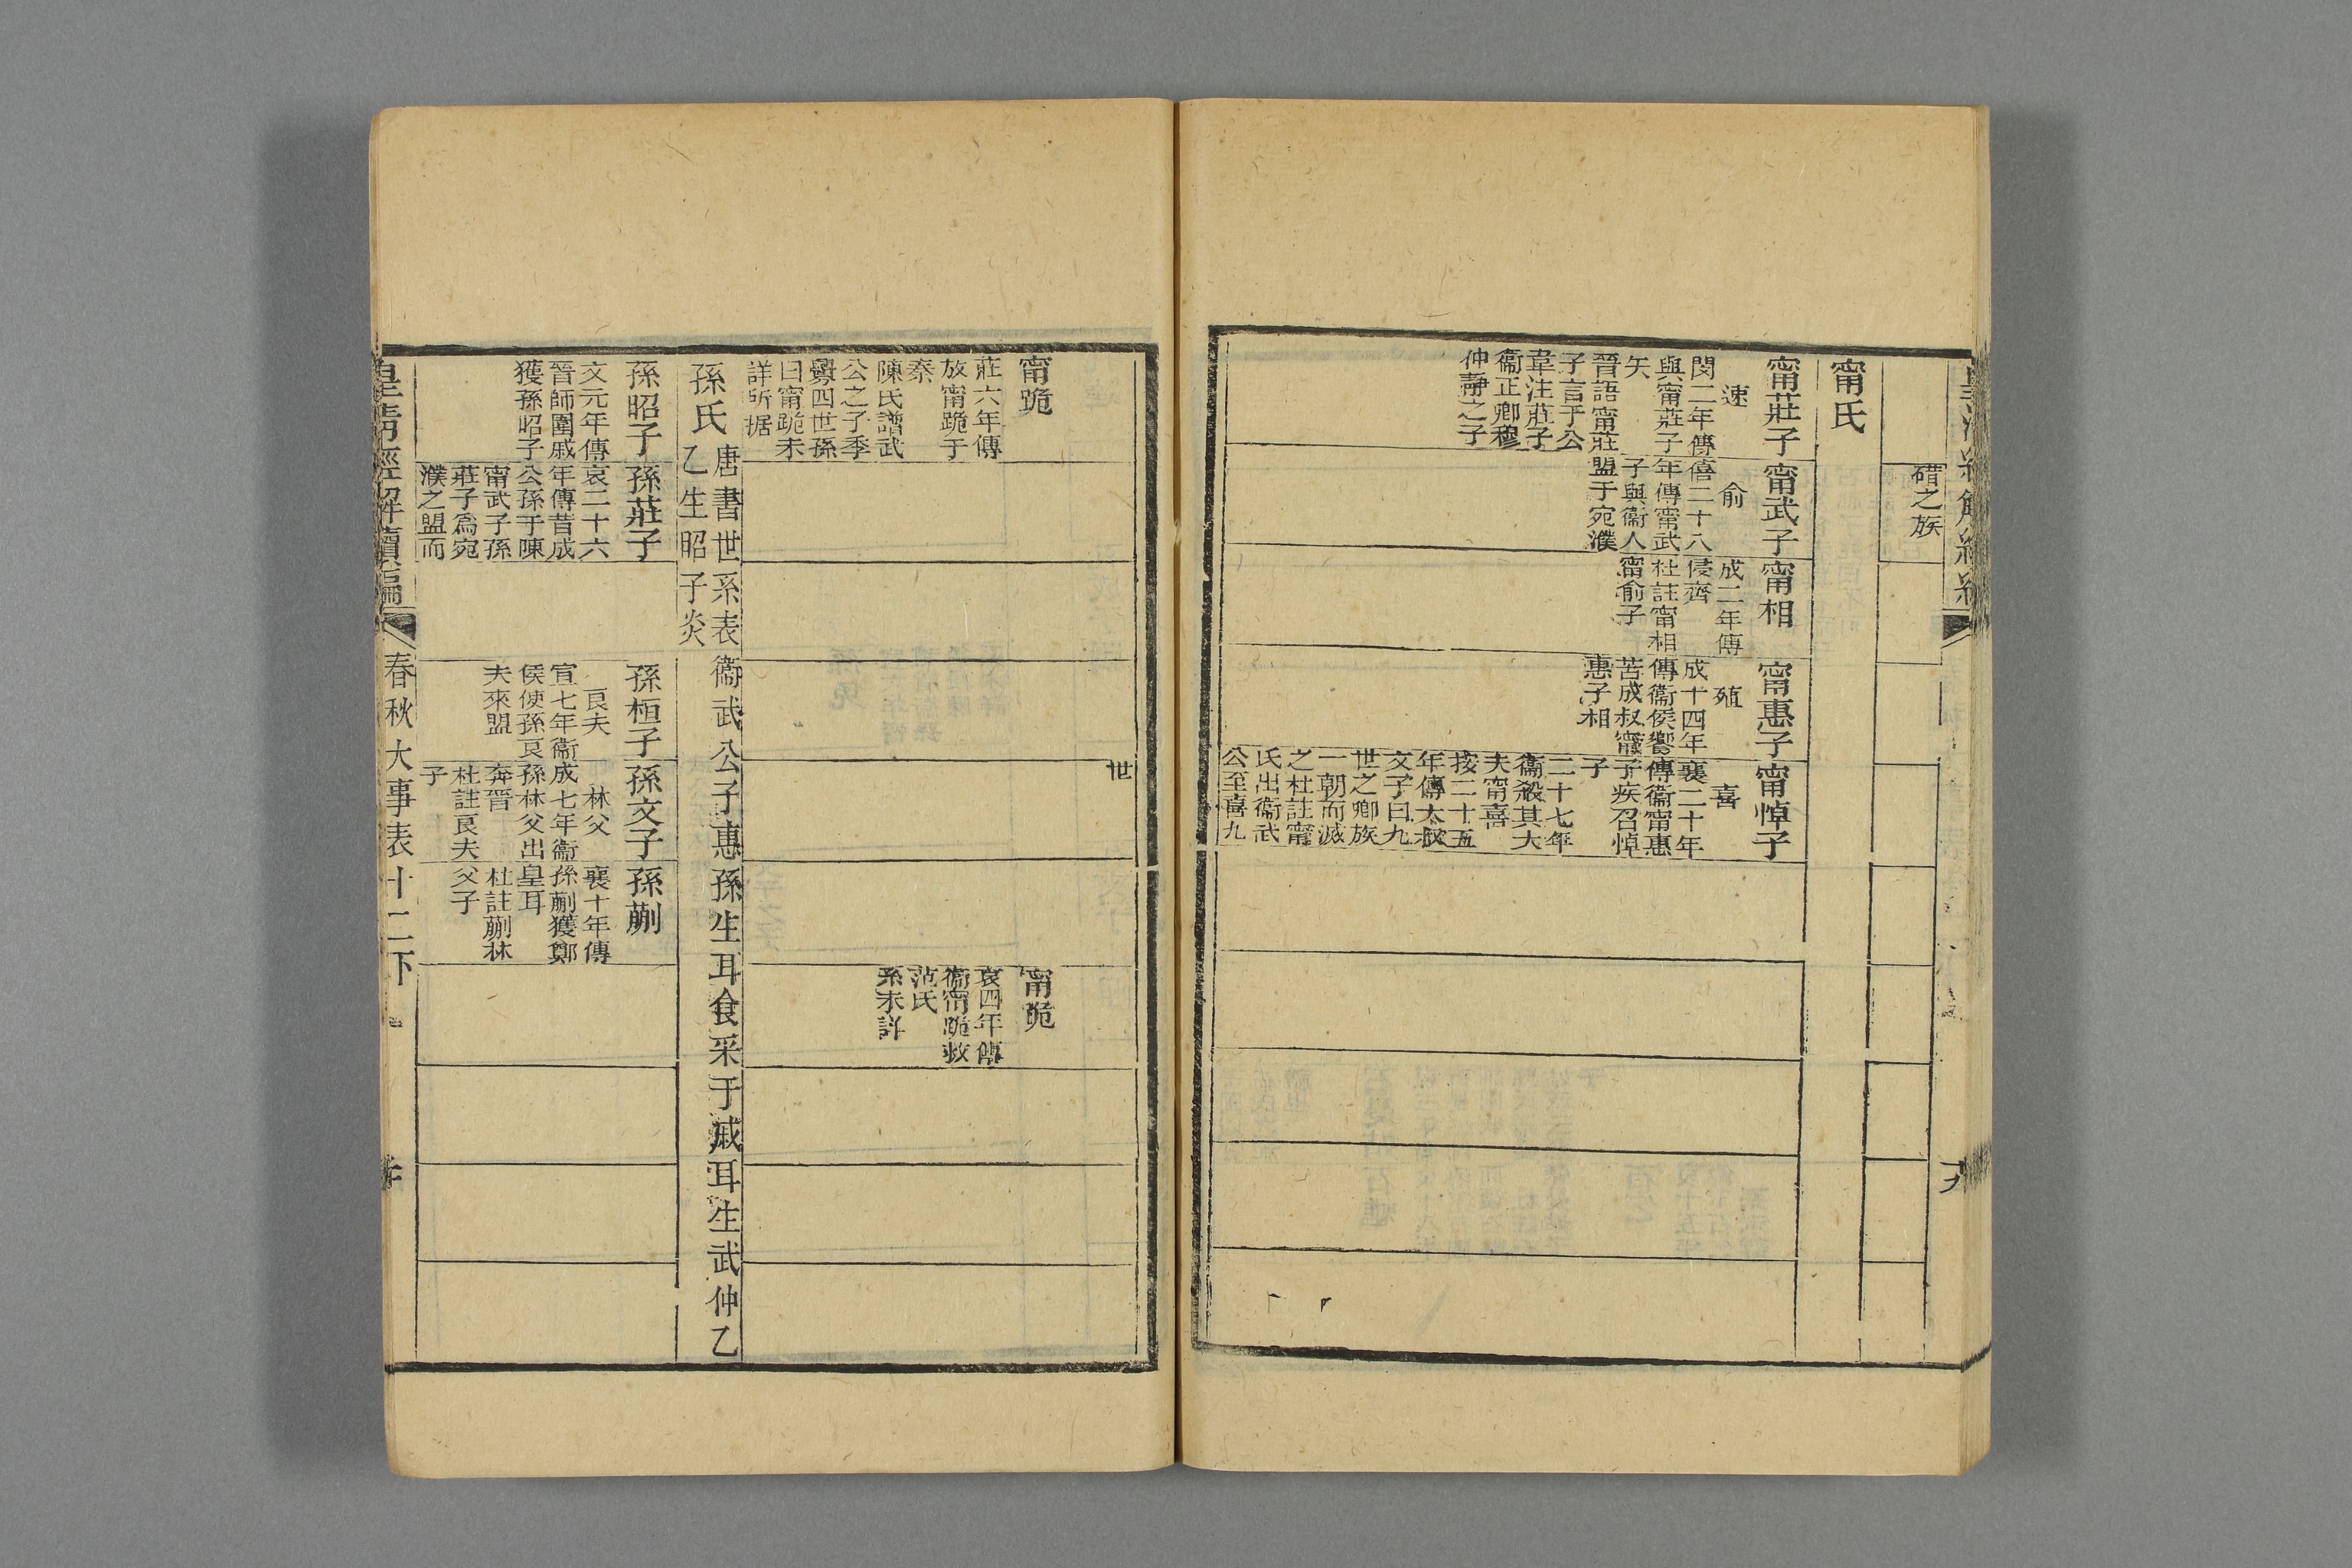 碏之族
甯氏
甯莊子
速
閔二年傳
與甯莊子
矢
晉語甯莊
子言于公
韋注莊子
衞正卿穆
仲靜之子
甯武子
俞
僖二十八
年傳甯武
子與衞人
盟于宛濮
甯相
成二年傳
侵齊
杜註甯相
甯俞子
甯惠子
殖
成十四年
傳衞侯饗
苦成叔甯
惠子相
甯悼子
喜
襄二十年
傳衞甯惠
子疾召悼
子
二十七年
衞殺其大
夫甯喜
按二十五
年傳大叔
文子曰九
世之卿族
一朝而滅
之杜註甯
氏出衞武
公至喜九
世
甯跪
莊六年傳
放甯跪于
秦
陳氏譜武
公之子季
亹四世孫
曰甯跪未
詳所据
甯跪
哀四年傳
衞甯跪救
范氏
系未詳
孫氏
唐書世系表衞武公子惠孫生耳食采于戚耳生武仲乙
乙生昭子炎
孫昭子
文元年傳
晉師圍戚
獲孫昭子
孫莊子
哀二十六
年傳昔成
公孫于陳
甯武子孫
莊子爲宛
濮之盟而
孫桓子
良夫
宣七年衞
侯使孫良
夫來盟
孫文子
林父
成七年衞
孫林父出
奔晉
杜註良夫
子
孫蒯
襄十年傳
孫蒯獲鄭
皇耳
杜註蒯林
父子
皇清經解續編
春秋大事表十二下